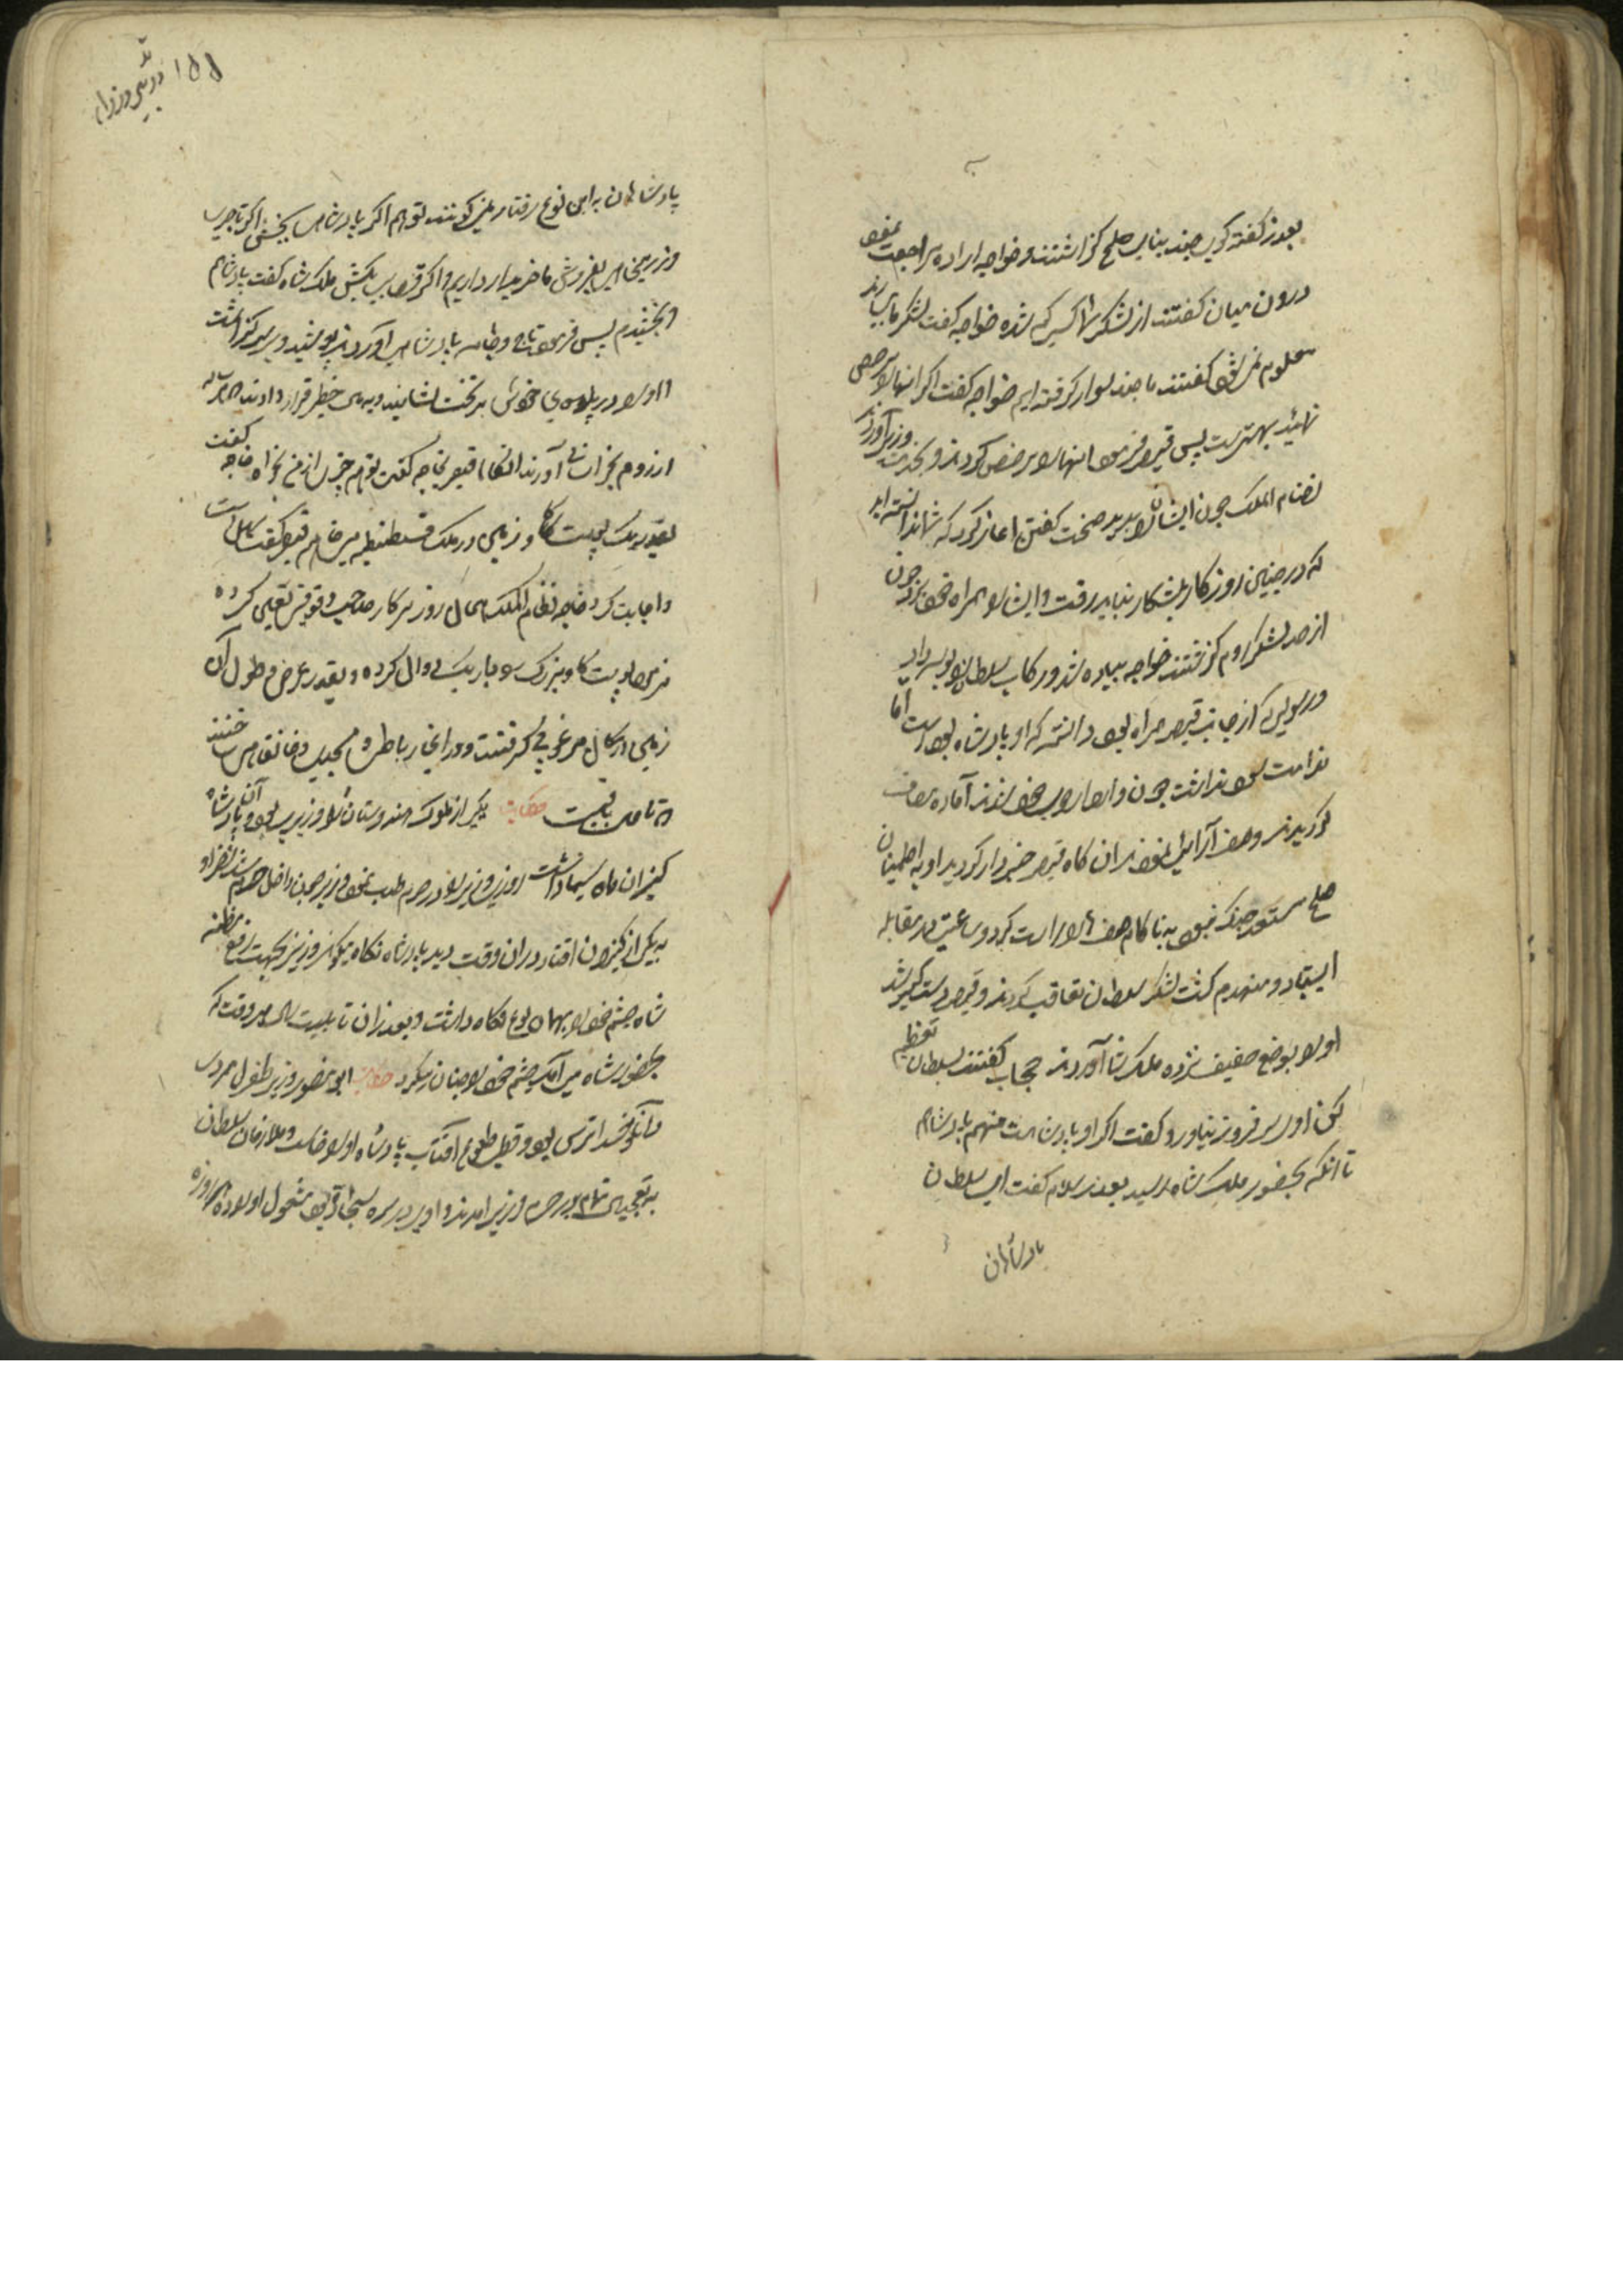 بعد از گفته گوی چند بنای صلح گذاشتند و خواجه اراده مراجعت نمود
درون میان گفتند از لشکر شما کسی کم شده خواجه کفت لشکر ما بسیارند
معلوم نمی شود کفتند ما چند سوار کرفته ایم خواجه کفت اکر انها را مرخص
نمائید بهتر ست پس قیصر فرمود انها را مرخص کردند و بخدمت وزیر آوردند
نضام الملک چون ایشان را بدید سخت کفتن اغاز کرد که شما ندانسته اید
که در چنین روزکار بشکار نباید رفت و ایشان را همراه خود برد چون
از حد لشکر روم کذشتند خواجه پیاده شد و رکاب سلطان را بوسه داد
و رسولی که از جانب قیصر همراه بود دانست که او پادشاه بوده است اما
ندامت سود نداشت چون و اردوی خود شدند آماده مصاف
کردیدند و صف آرائی نمودند ان کاه قیصر خبردار کردید او به اطمینان
صلح مستعد جنک نبود به ناکام صف ها را راست کرد و ساعتی در مقابله
ایستاد و منهزم کشت لشکر سلطان تعاقب کردند و قیصر دستکیر شد
او را بوضع خفیف نزد ملک شاه آوردند حجاب کفتند سلطان را تعظیم
کن او سر فرو نیاورد و کفت اکر او پادشاه است منهم پادشاهم
تا انکه بحضور ملک شاه رسید بعد از سلام کفت ای سلطان
پادشاهان
۱۵۵
پادشاهان به این نوع رفتار نمی کنند تو هم اکر پادشاهی ببخش اکر تاجری
و زر میخواهی بفروش ما خریدار داریم و اکر قصابی بکش ملک شاه کفت پادشاهم
و بخشیدم پس فرمود تاج و جامه پادشاهی آوردند پوشید و بر سر کذاشت
و او را در پهلوی خویش بر تخت نشانید و بهای خطیر قرار دادند هر ساله
از روم بخزانه آورند انکاه قیصر بخواجه کفت تو هم چیزی از من بخواه خواجه کفت
بقدر یک پوست کاو زمین در ملک قسطنطیه میخواهم قیصر کفت سهل است
و اجابت کرد خواجه نظام الملک
فرمود پوست کاو بزرک را باریک دوال کرده و بقدر عرض و طول آن
زمین در کمال مرغوبی کرفتند و در انجا رباطی و مسجدی و خانقاهی ساختند
و تا حال باقیست حکایت یکی از ملوک هندوستان را وزیری بود و آن پادشاه
کنیزان ماه سیما داشت روزی وزیر را در حرم طلب نمود وزیر چون داخل حرم شد نظر او
به یکی از کنیزان افتاد در ان وقت دید پادشاه نکاه میکند وزیر بجهت رفع مظنه
شاه چشم خود را بهمان نوع نکاه داشت و بعد از ان تا بیست سال هر وقت که
بحضور شاه می آمد چشم خود را چنان میکرد حکایت ابو نصر وزیر طغرل مردی
دانا و خدا ترس بود و قبل طلوع آفتاب پادشاه او را خواست و ملازمان سلطان
به تعجیل تمام بدر سرای وزیر امدند و او بر سر سجاده مشغول اوراد هر روزه